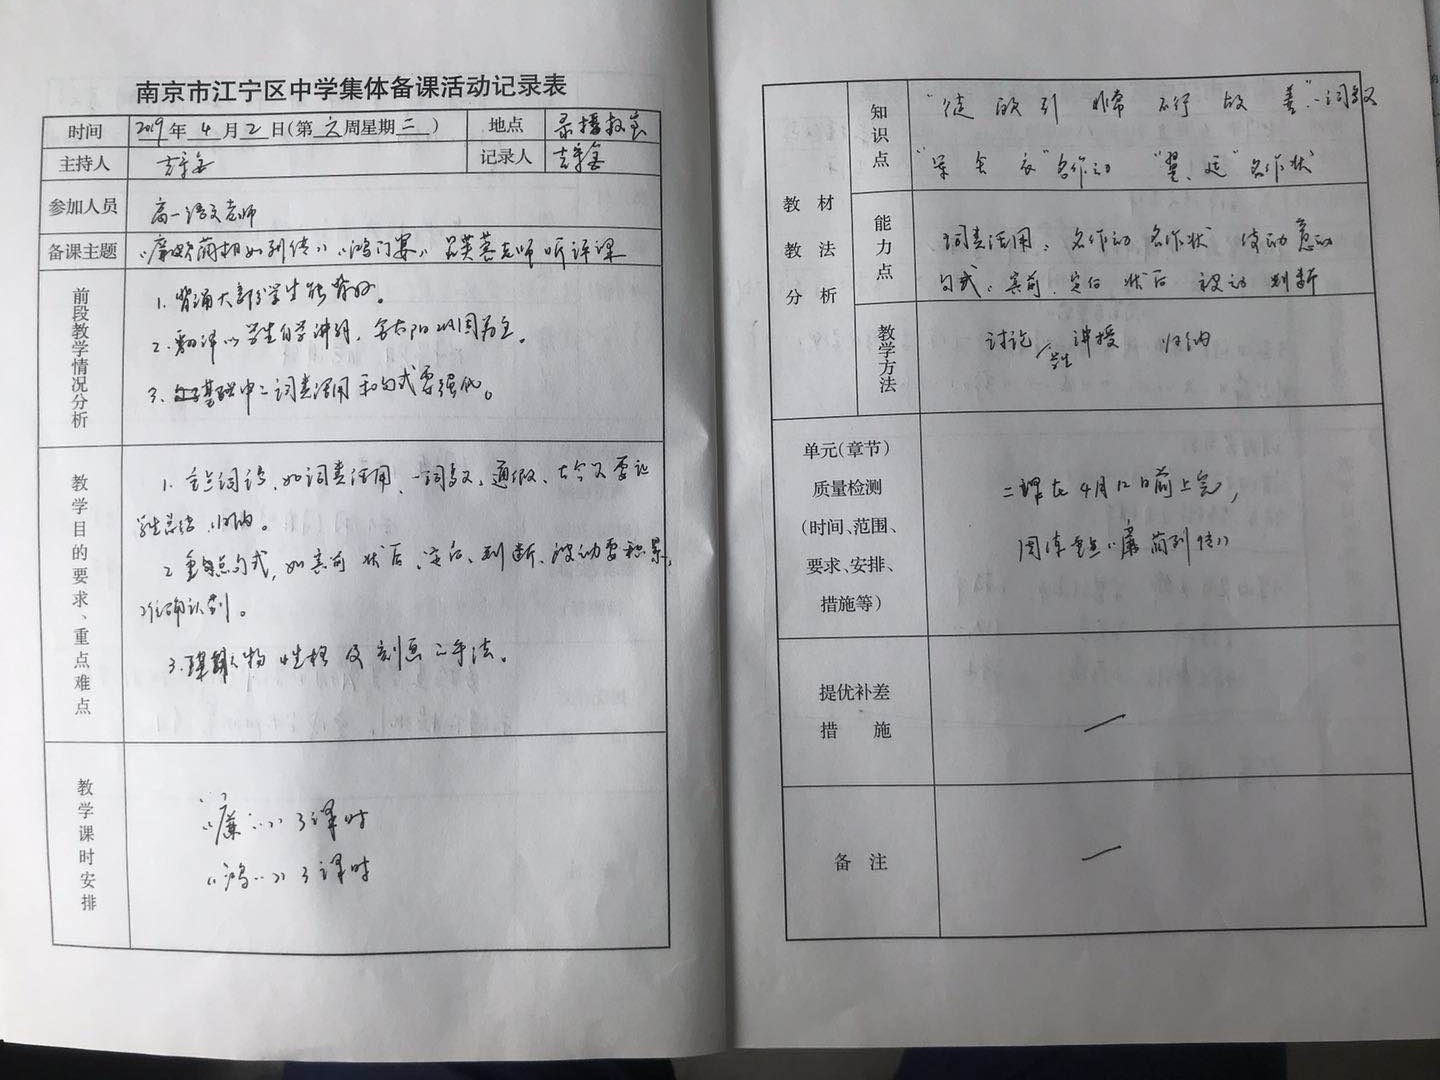 南京市江宁区中学集体备课活动记录表
时间 2019年4月2日(第六周星期二) 地点 录播教室
主持人 记录人
参加人员 高一语文老师
备课主题 《廉颇蔺相如列传》《鸿门宴》 吕芙蓉老师听评课
前段教学情况分析
1. 背诵大部分学生能背好。
2. 翻译以学生自学讲明, 为主。
3. 基础中词类活用和句式要强化。
教学目的要求、重点难点
1. 重点词语、如词类活用、一词多义、通假、古今义要让
学生总结归纳。
2 重点句式, 如宾前 状后、定后、判断、被动要积累,
准确认到。
3. 人物性格及刻画手法。
教学课时安排
《廉…》3课时
《鸿…》3课时
教材教法分析
知识点
"徒 欲 引 非常 不行 故 善"一词多义
衣"名作动 "翼、廷"名作状
能力点
词类活用、名作动 名作状 使动 意动
句式:宾前、定后 状后 被动 判断
教学方法
讨论 学生讲授 归纳
单元(章节)
质量检测
(时间、范围、
要求、安排、
措施等)
二课在4月12日前上完,
周练重点《廉蔺列传》
提优补差
措 施
—
备 注
—